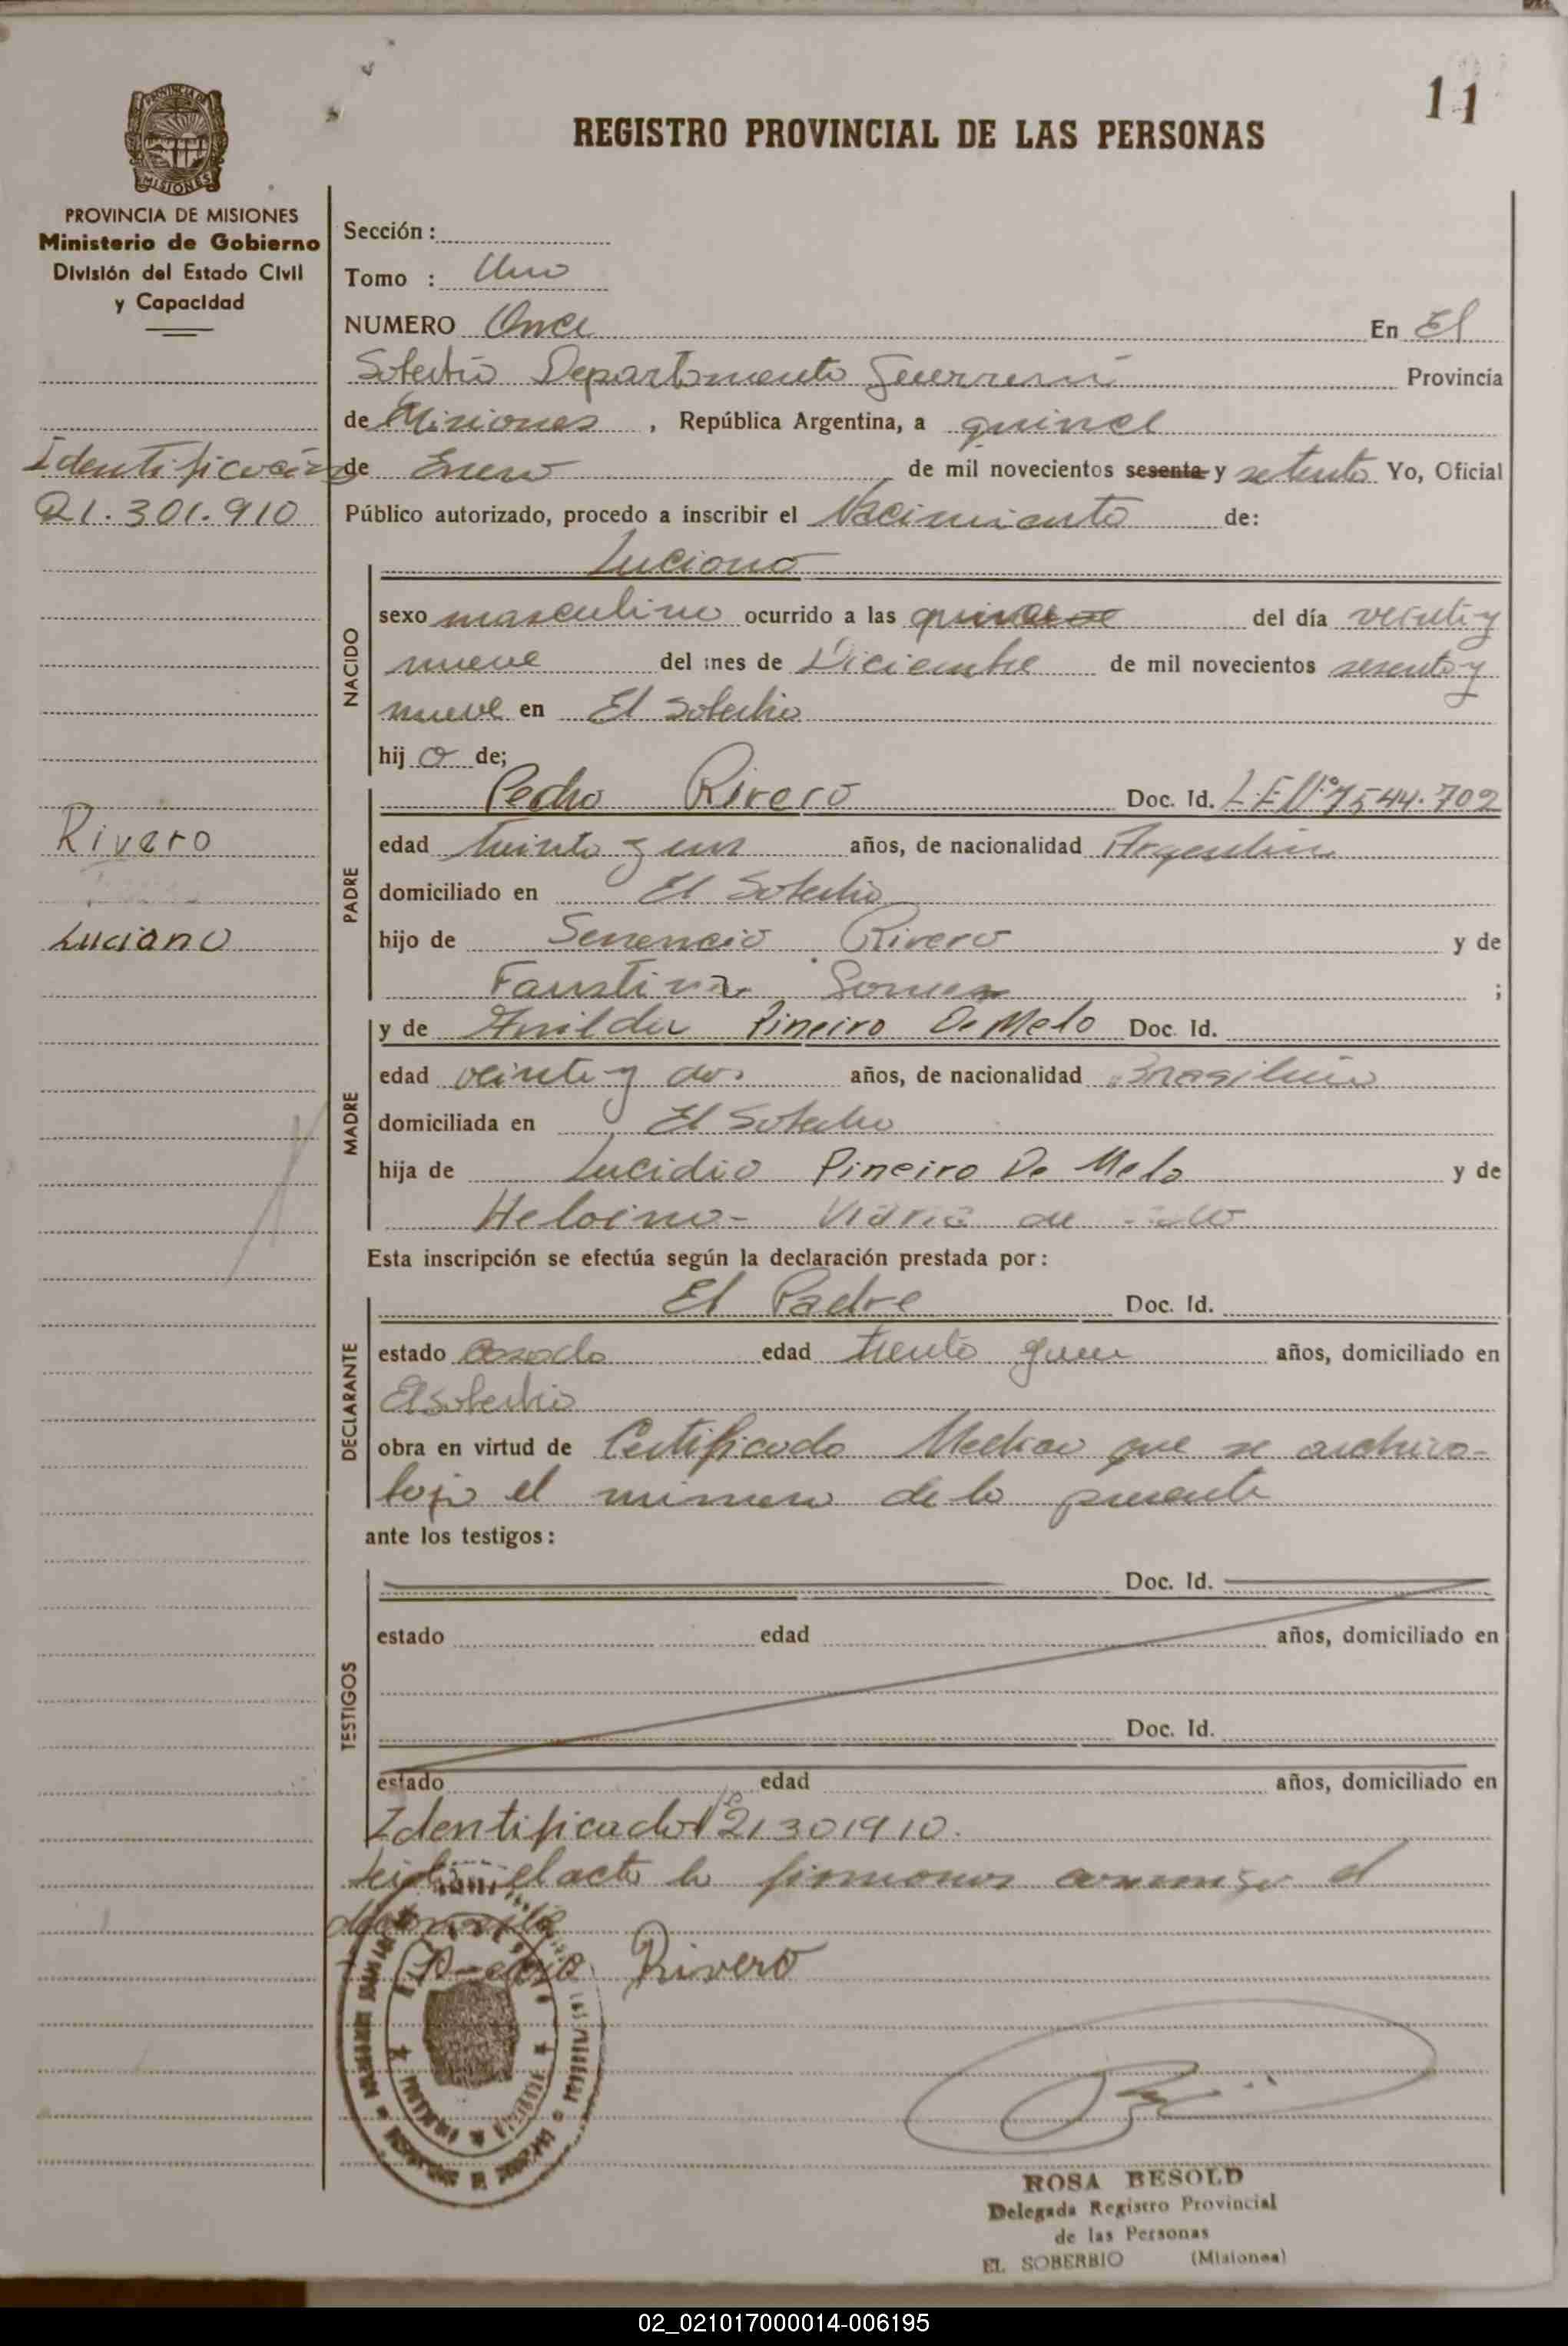 11
REGISTRO PROVINCIAL DE LAS PERSONAS
PROVINCIA DE MISIONES
Ministerio de Gobierno
División del Estado Civil
y Capacidad
Identificación
21.301.910
Rivero
Luciano
Sección :
Tomo : Uno
NUMERO Once En El
Soberbio Departamento Guaraní Provincia
de Misiones , República Argentina, a quince
de Enero de mil novecientos sesenta y setenta Yo, Oficial
Público autorizado, procedo a inscribir el Nacimiento de:
NACIDO
Luciano
sexo masculino ocurrido a las del día veinti y
nueve del mes de Diciembre de mil novecientos sesenta y
nueve en El Soberbio
hij o de;
PADRE
Pedro Rivero Doc. Id. L.E.Nº 7544.702
edad treinta y un años, de nacionalidad Argentina
domiciliado en El Soberbio
hijo de Rivero y de
Faustina ;
MADRE
y de Pineiro De Melo Doc. Id.
edad veinte y dos años, de nacionalidad Brasilera
domiciliada en El Soberbio
hija de Lucidio Pineiro De Melo y de
Heloina - Maria de
Esta inscripción se efectúa según la declaración prestada por :
DECLARANTE
El Padre Doc. Id.
estado Casado edad treinta y un años, domiciliado en
El Soberbio
obra en virtud de Certificado Medico que se archiva-
bajo el numero de la presente
ante los testigos :
TESTIGOS
Doc. Id.
estado edad años, domiciliado en
Doc. Id.
estado edad años, domiciliado en
Identificado Nº 21301910.
el acta la firmamos conmigo el
Rivero
ROSA BESOLD
Delegada Registro Provincial
de las Personas
EL SOBERBIO (Misiones)
02_021017000014-006195